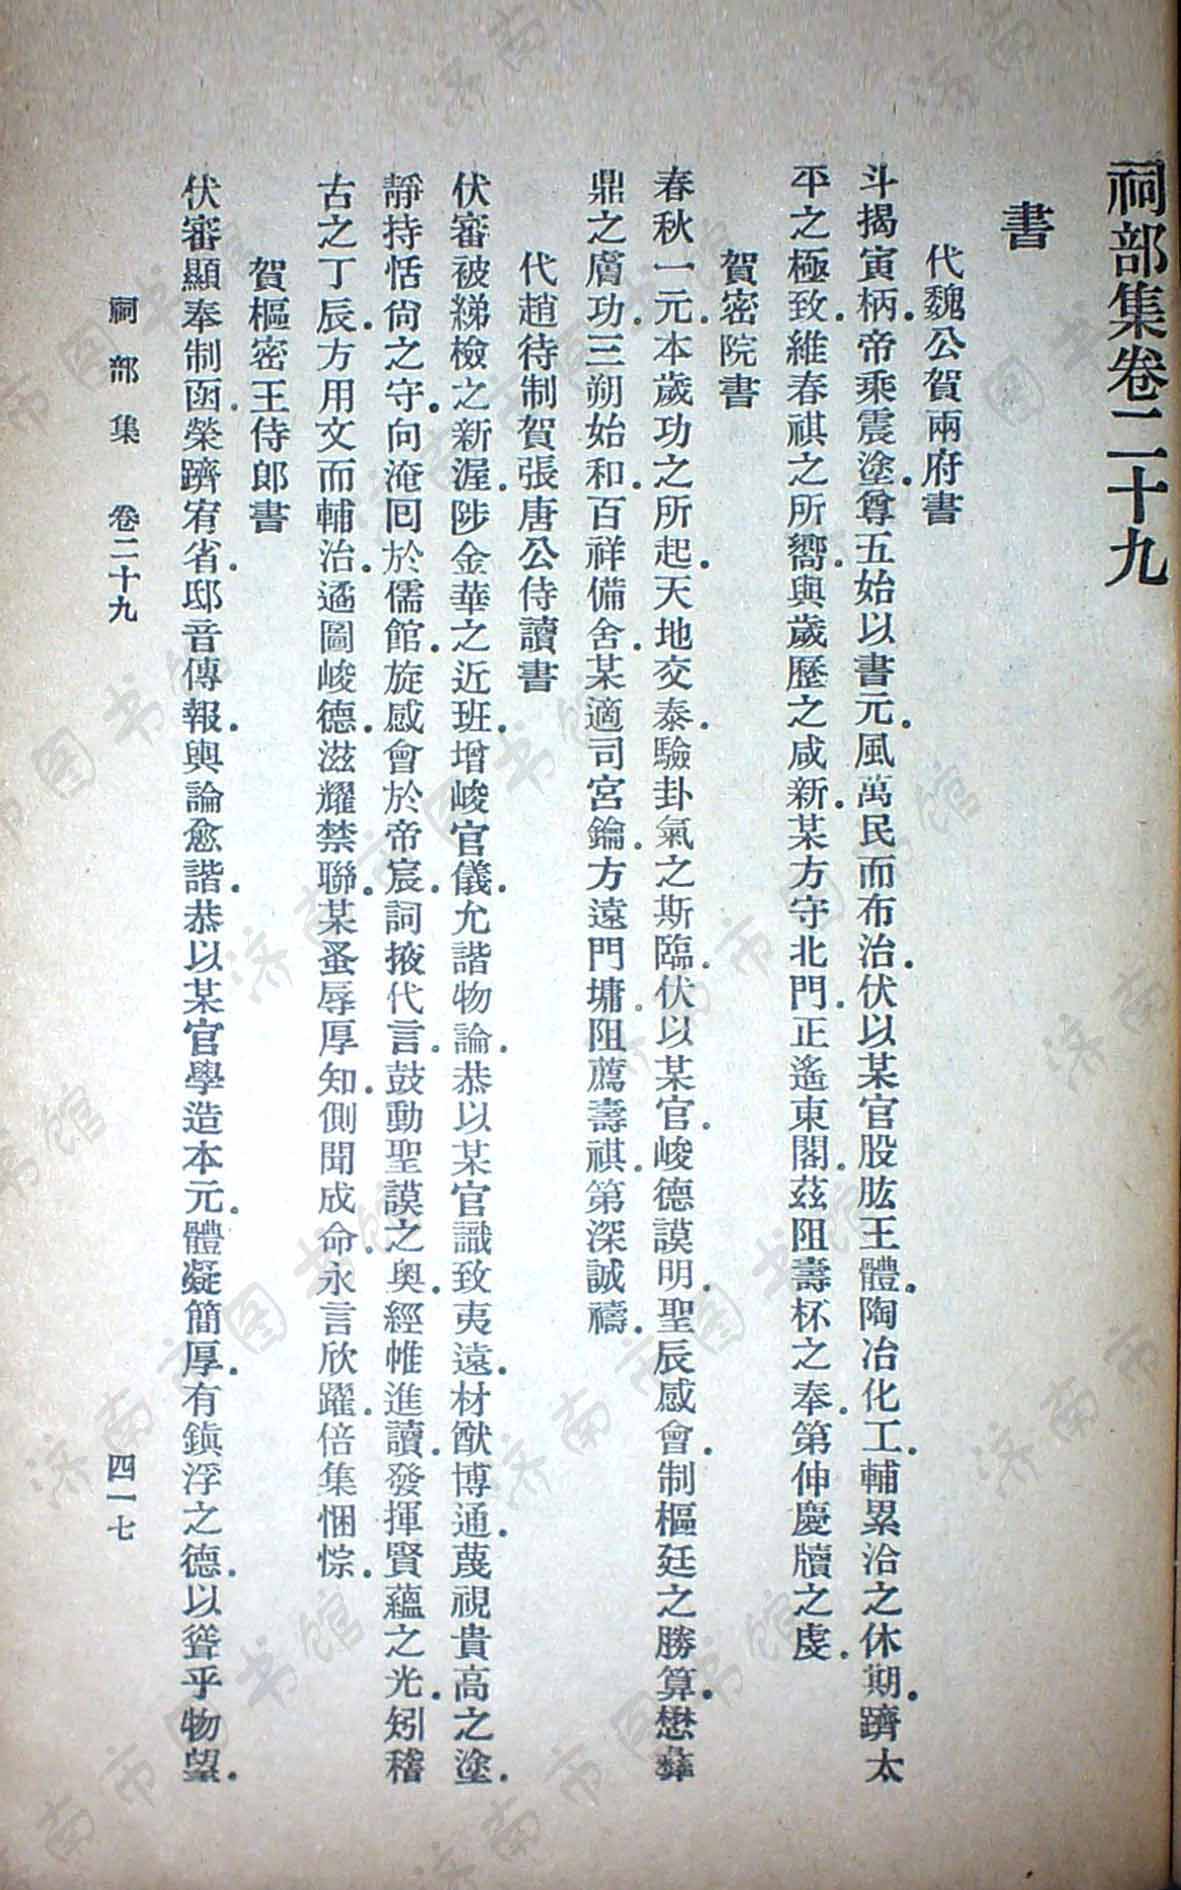 祠部集卷二十九
書
代魏公賀兩府書
斗揭寅柄。帝乘震塗。尊五始以書元。風萬民而布治。伏以某官股肱王體。陶冶化工。輔累洽之休期。躋太
平之極致。維春祺之所嚮。與歲歷之咸新。某方守北門。正遙東閣。茲阻壽杯之奉。第伸慶牘之虔。
賀密院書
春秋一元。本歲功之所起。天地交泰。驗卦氣之斯臨。伏以某官。峻德謨明。聖辰感會。制樞廷之勝算。懋彝
鼎之膚功。三朔始和。百祥備舍。某適司宮鑰。方遠門墉。阻薦壽祺。第深誠禱。
代趙待制賀張唐公侍讀書
伏審被綈檢之新渥。陟金華之近班。增峻官儀。允諧物論。恭以某官識致夷遠。材猷博通。蔑視貴高之塗。
靜持恬尙之守。向淹囘於儒館。旋感會於帝宸。詞掖代言。鼓動聖謨之奥。經帷進讀。發揮賢蘊之光。矧稽
古之丁辰。方用文而輔治。遹圖峻德。滋耀禁聯。某蚤辱厚知。側聞成命。永言欣躍。倍集悃悰。
賀樞密王侍郎書
伏審顯奉制函。榮躋宥省。邸音傳報。輿論愈諧。恭以某官學造本元。體凝簡厚。有鎭浮之德。以聳乎物望。
祠部集 卷二十九 四一七
济南市图书馆